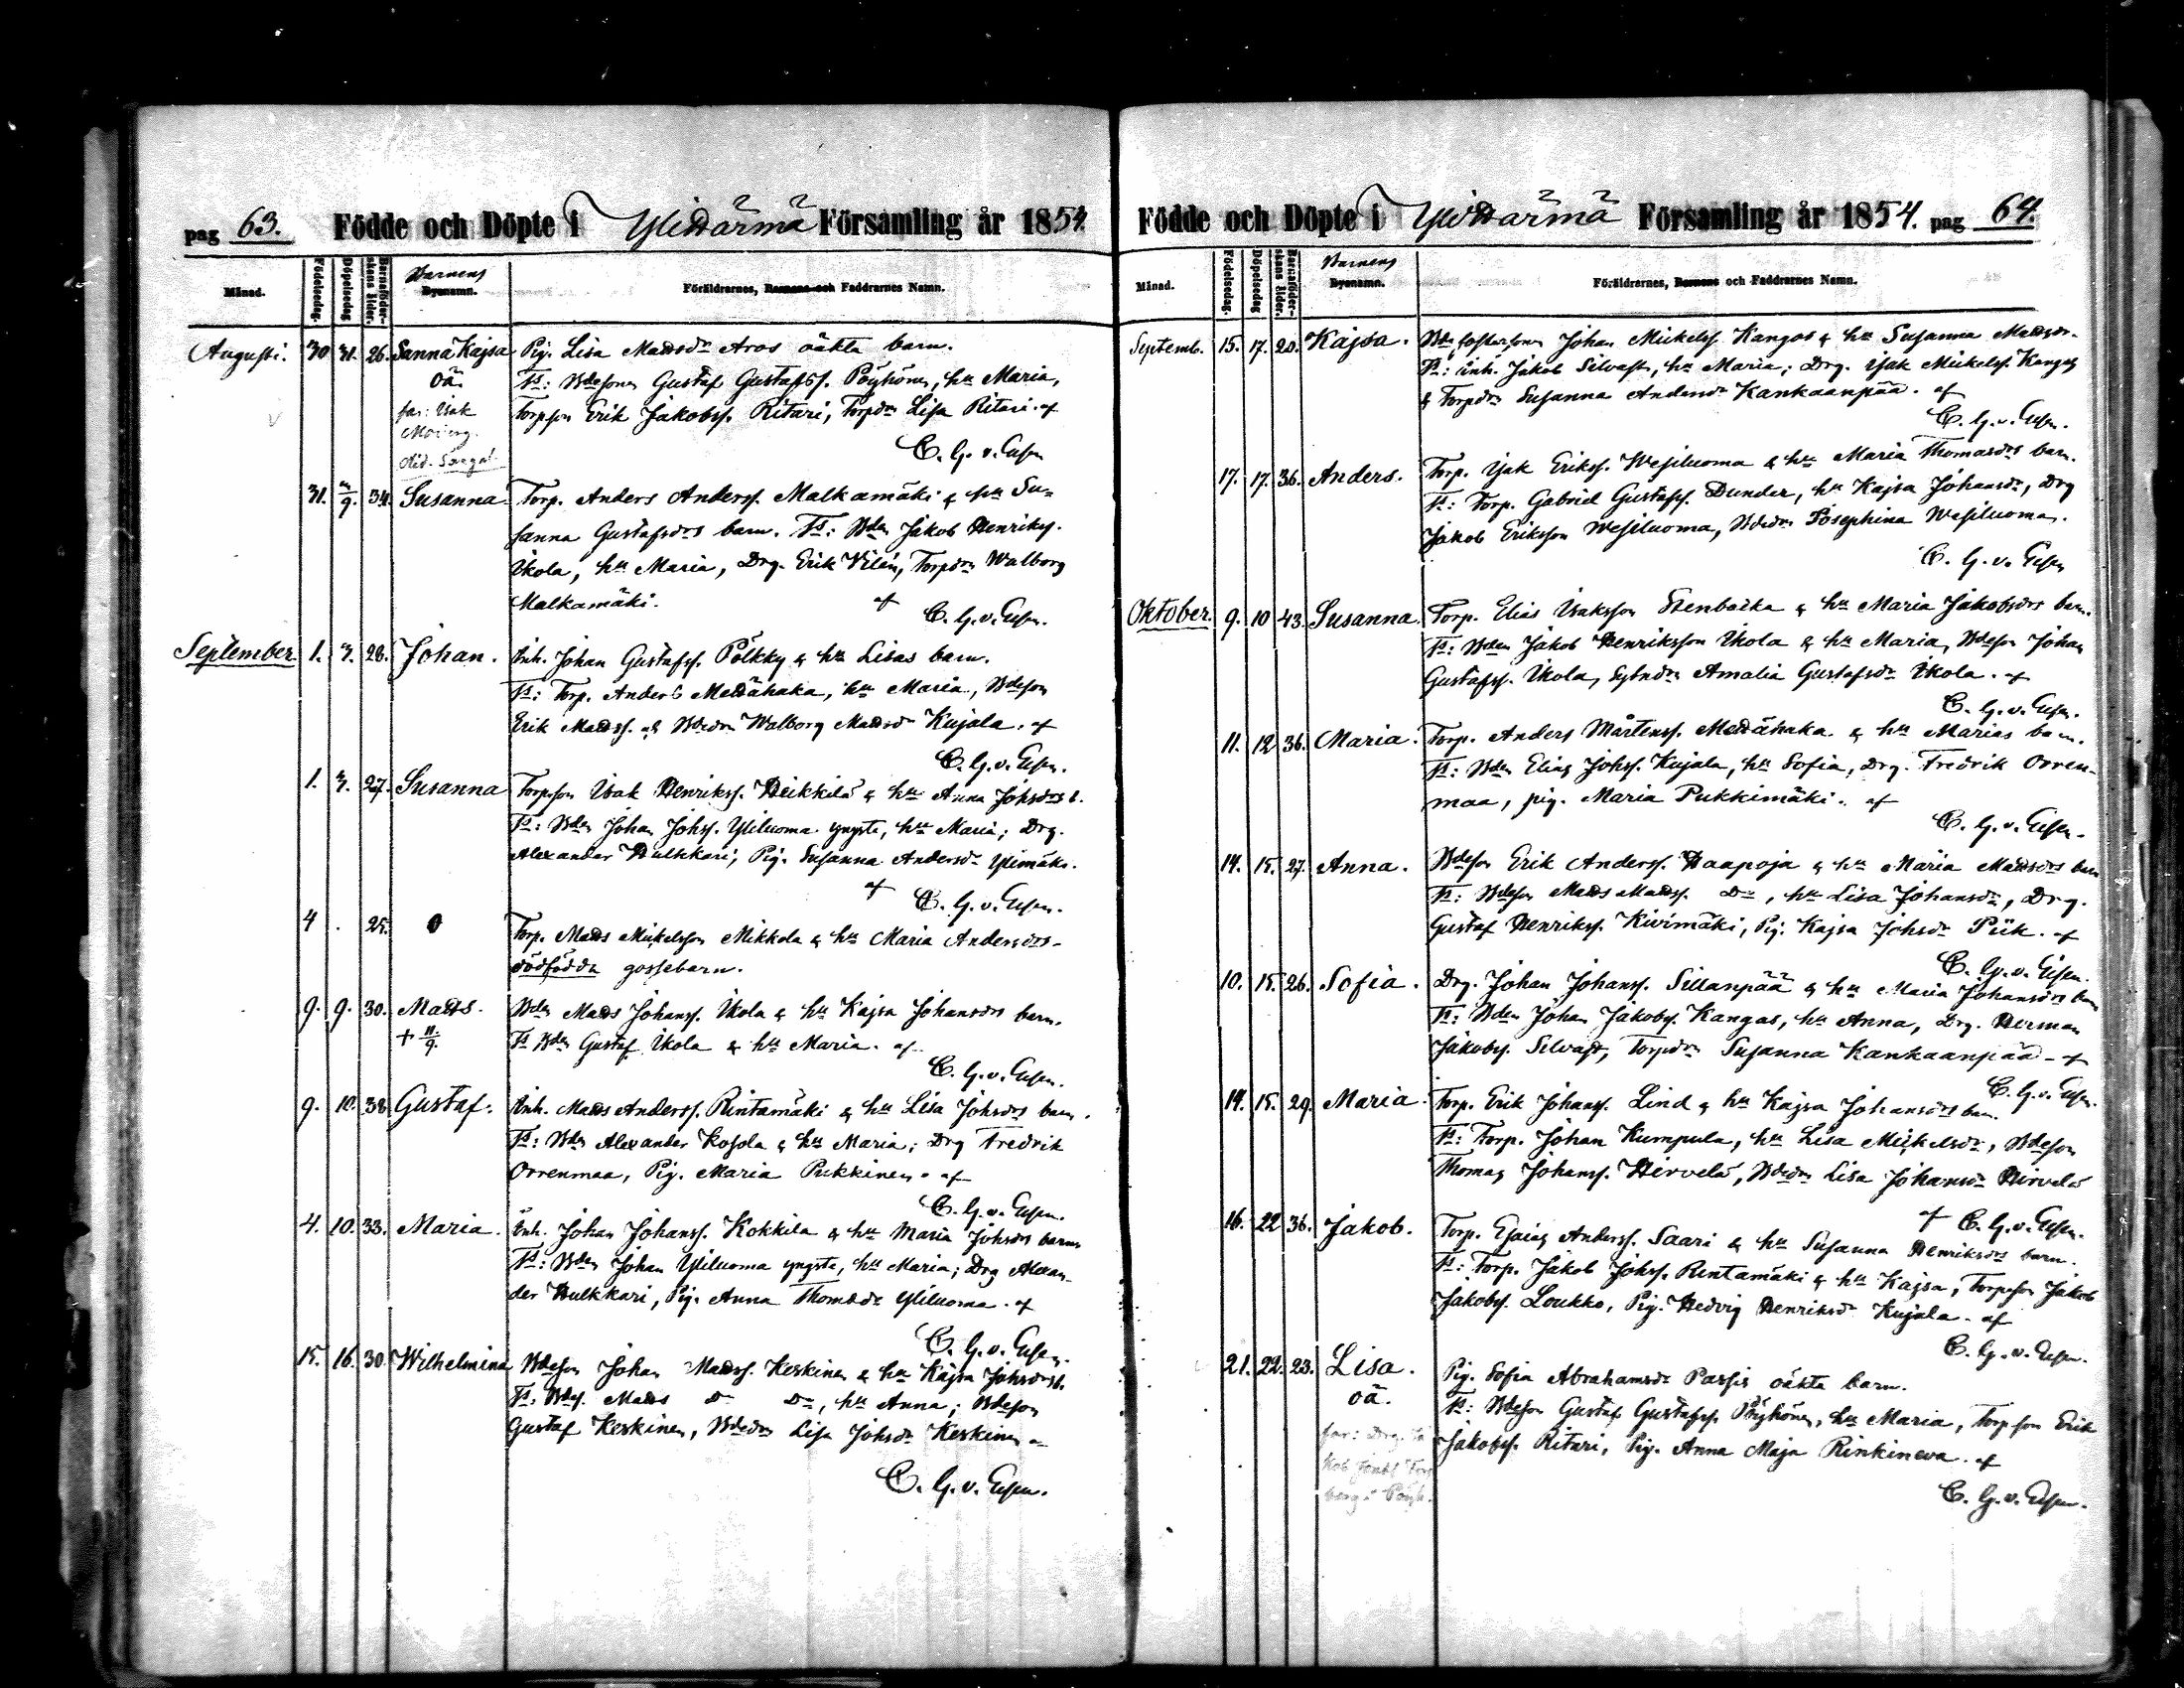 pag 63. Födde och Döpte i Ylihärmä Församling år 1854.
Månad. Födelsedag. Döpelsedag Barnaföderskans ålder. Barnens Bynamn. Föräldrarnes, Barnens och Faddrarnes Namn.
Augusti. 30 31. 26. Sanna Kajsa Pig. Lisa Mattsdr Aros oäkta barn.
oä. Ts: Bdesonen Gustaf Gustafss. Pöyhönen, hu Maria,
far: Isak Torpson Erik Jakobss. Ritari, Torpdr Lisa Ritari. af
C. G. v. Essen
31. 3/9. 34. Susanna. Torp. Anders Anderss. Malkamäki & hu Su-
sanna Gustafsdrs barn. Ts: Bden Jakob Henrikss.
Ikola, hu Maria, Drg. Erik Vilén, Torpdr Walborg
Malkamäki. af C. G. v. Essen.
September. 1. 3. 28. Johan. Inh. Johan Gustafss. Pölkky & hu Lisas barn.
Ts: Torp. Anders Mettähaka, hu Maria, Bdeson
Erik Mattss. & Bdedr Walborg Mattsdr Kujala. af
C. G. v. Essen.
1. 3. 27. Susanna Torpson Isak Henrikss. Heikkilä & hu Anna Johsdrs b.
Ts: Bden Johan Johss. Yliluoma yngste, hu Maria; Drg.
Alexander Hulkkari, Pig. Susanna Andersdr Ylimäki.
af C. G. v. Essen.
4 . 25. 0 Torp. Matts Mickelsson Mikkola & hu Maria Andersdrs
dödfödda gossebarn.
9. 9. 30. Matts. Bden Matts Johanss. Ikola & hu Kajsa Johansdrs barn.
+ 11/9. Ts Bden Gustaf Ikola & hu Maria. af
C. G. v. Essen.
9. 10. 38 Gustaf. Inh. Matts Anderss. Rintamäki & hu Lisa Johsdrs barn.
Ts: Bden Alexander Kosola & hu Maria; Drg Fredrik
Orrenmaa, Pig. Maria Pukkinen. af
C. G. v. Essen.
4. 10. 33. Maria. Inh. Johan Johanss. Kokkila & hu Maria Johsdrs barn
Ts: Bden Johan Yliluoma yngste, hu Maria; Drg Alexan-
der Hulkkari, Pig. Anna Thomasdr Yliluoma. af
C. G. v. Essen.
15. 16. 30. Wilhelmina Bdeson Johan Mattss. Keskinen & hu Kajsa Johsdrs b.
Ts: Bdes. Matts Do Do, hu Anna; Bdeson
Gustaf Keskinen, Bdedr Lisa Johsdr Keskinen
C. G. v. Essen.
Födde och Döpte i Ylihärmä Församling år 1854. pag 64.
Månad. Födelsedag. Döpelsedag Barnaföderskans ålder. Barnens Bynamn. Föräldrarnes, Barnens och Faddrarnes Namn.
Septemb. 15. 17. 20. Kajsa. Bde fostersonen Johan Mickelss. Kangas & hu Susanna Mattsdr.
Ts: inh. Jakob Silvast, hu Maria; Drg. Isak Mickelss. Kangas
& Torpdr Susanna Andersdr Kankaanpää. af
C. G. v. Essen.
17. 17. 36. Anders. Torp. Isak Erikss. Wesiluoma & hu Maria Thomasdrs barn.
Ts: Torp. Gabriel Gustafss. Dunder, hu Kajsa Johansdr, Drg
Jakob Eriksson Wesiluoma, Bdedr Josephina Wesiluoma.
C. G. v. Essen
Oktober. 9. 10 43. Susanna. Torp. Elias Isaksson Stenbacka & hu Maria Jakobsdrs barn.
Ts: Bden Jakob Henriksson Ikola & hu Maria, Bdeson Johan
Gustafss. Ikola, Sytndr Amalia Gustafsdr Ikola. af
C. G. v. Essen.
11. 12 36. Maria. Torp. Anders Mårtenss. Mettähaka & hu Marias barn.
Ts: Bden Elias Johss. Kujala, hu Sofia, Drg. Fredrik Orren-
maa, pig. Maria Pukkimäki. af
C. G. v. Essen.
14. 15. 27. Anna. Bdeson Erik Anderss. Haapoja & hu Maria Mattsdrs barn
Ts: Bdeson Matts Mattss. Do, hu Lisa Johansdr, Drg.
Gustaf Henrikss. Kivimäki, Pig. Kajsa Johsdr Piik. af
C. G. v. Essen.
10. 15. 26. Sofia. Drg. Johan Johanss. Sillanpää & hu Maria Johansdrs barn
Ts: Bden Johan Jakobss. Kangas, hu Anna, Drg. Herman
Jakobss. Silvast, Torpdr Susanna Kankaanpää. af
C. G. v. Essen.
14. 15. 29. Maria. Torp. Erik Johanss. Lind & hu Kajsa Johansdrs barn.
Ts: Torp. Johan Kumpula, hu Lisa Mickelsdr, Bdeson
Thomas Johanss. Hirvelä, Bdedr Lisa Johansdr Hirvelä
af C. G. v. Essen.
16. 22 36. Jakob. Torp. Esaias Anderss. Saari & hu Susanna Henriksdrs barn.
Ts: Torp. Jakob Johss. Rintamäki & hu Kajsa, Torpson Jakob
Jakobss. Loukko, Pig. Hedvig Henriksdr Kujala. af
C. G. v. Essen.
21. 22. 23. Lisa. Pig. Sofia Abrahamsdr Passis oäkta barn.
oä. Ts: Bdeson Gustaf Gustafss. Pöyhönen, hu Maria, Torpson Erik
far: Drg. Ja Jakobss. Ritari, Pig. Anna Maja Rinkineva. af
kob
C. G. v. Essen.